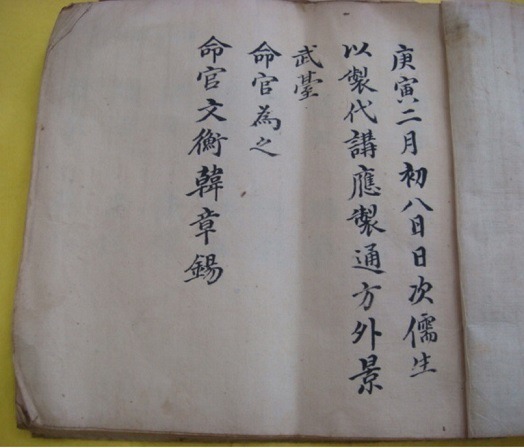 庚寅二月初八日日次儒生
以製代講應製通方外景
武臺
命官為之
命官文衡韓章錫